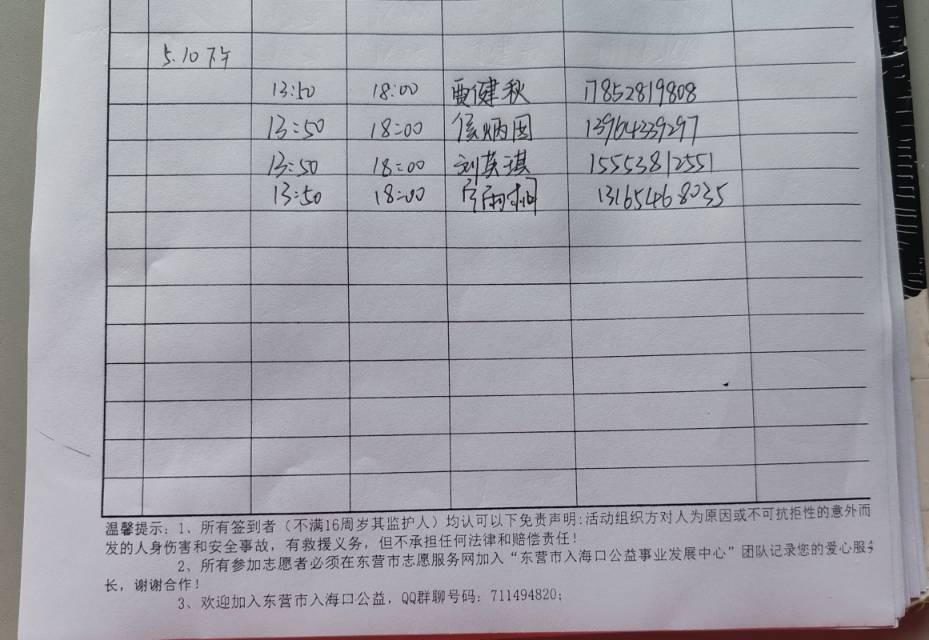 5.10下午
13:50 18:00 贾健秋 17852819808
13:50 18:00 侯炳国 13964239297
13:50 18:00 刘英琪 15553812551
13:50 18:00 雨桐 13165468035
温馨提示：1、所有签到者（不满16周岁其监护人）均认可以下免责声明:活动组织方对人为原因或不可抗拒性的意外而
发的人身伤害和安全事故，有救援义务，但不承担任何法律和赔偿责任！
2、所有参加志愿者必须在东营市志愿服务网加入“东营市入海口公益事业发展中心”团队记录您的爱心服务
长，谢谢合作！
3、欢迎加入东营市入海口公益，QQ群聊号码：711494820；